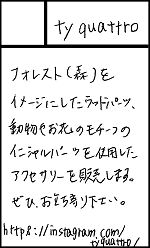 ty quattro
フォレスト(森)を
イメージにしたウッドパーツ、
動物やお花のモチーフの
イニシャルパーツを使用した
アクセサリーを販売します。
ぜひ、お立ち寄り下さい。
https://instagram.com/
tyquattro/